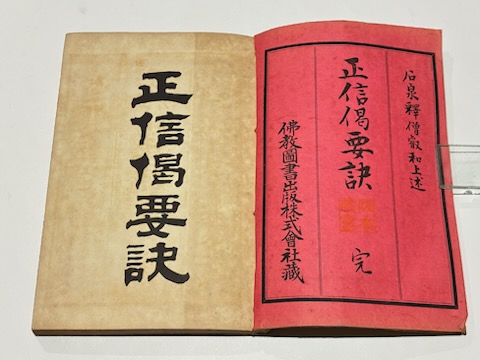 石泉釋僧叡和上述
正信偈要訣
完
佛教圖書出版株式會社藏
正信偈要訣